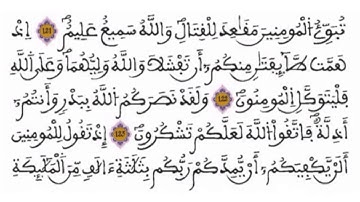 تُبَوِّئُ الْمُومِنِينَ مَقَٰعِدَ لِلْقِتَالِ وَاللَّهُ سَمِيعٌ عَلِيمٌ 121 إِذْ
هَمَّت طَّآئِفَتَٰنِ مِنكُمُۥٓ أَن تَفْشَلَا وَاللَّهُ وَلِيُّهُمَا وَعَلَى اللَّهِ
فَلْيَتَوَكَّلِ الْمُومِنُونَ 122 وَلَقَدْ نَصَرَكُمُ اللَّهُ بِبَدْرٍ وَأَنتُمُۥٓ
أَذِلَّةٌ فَاتَّقُوا اللَّهَ لَعَلَّكُمْ تَشْكُرُونَ 123 إِذْ تَقُولُ لِلْمُومِنِينَ
أَلَنْ يَّكْفِيَكُمُۥٓ أَنْ يُّمِدَّكُمْ رَبُّكُم بِثَلَٰثَةِ ءَالَٰفٍ مِّنَ الْمَلَٰٓئِكَةِ